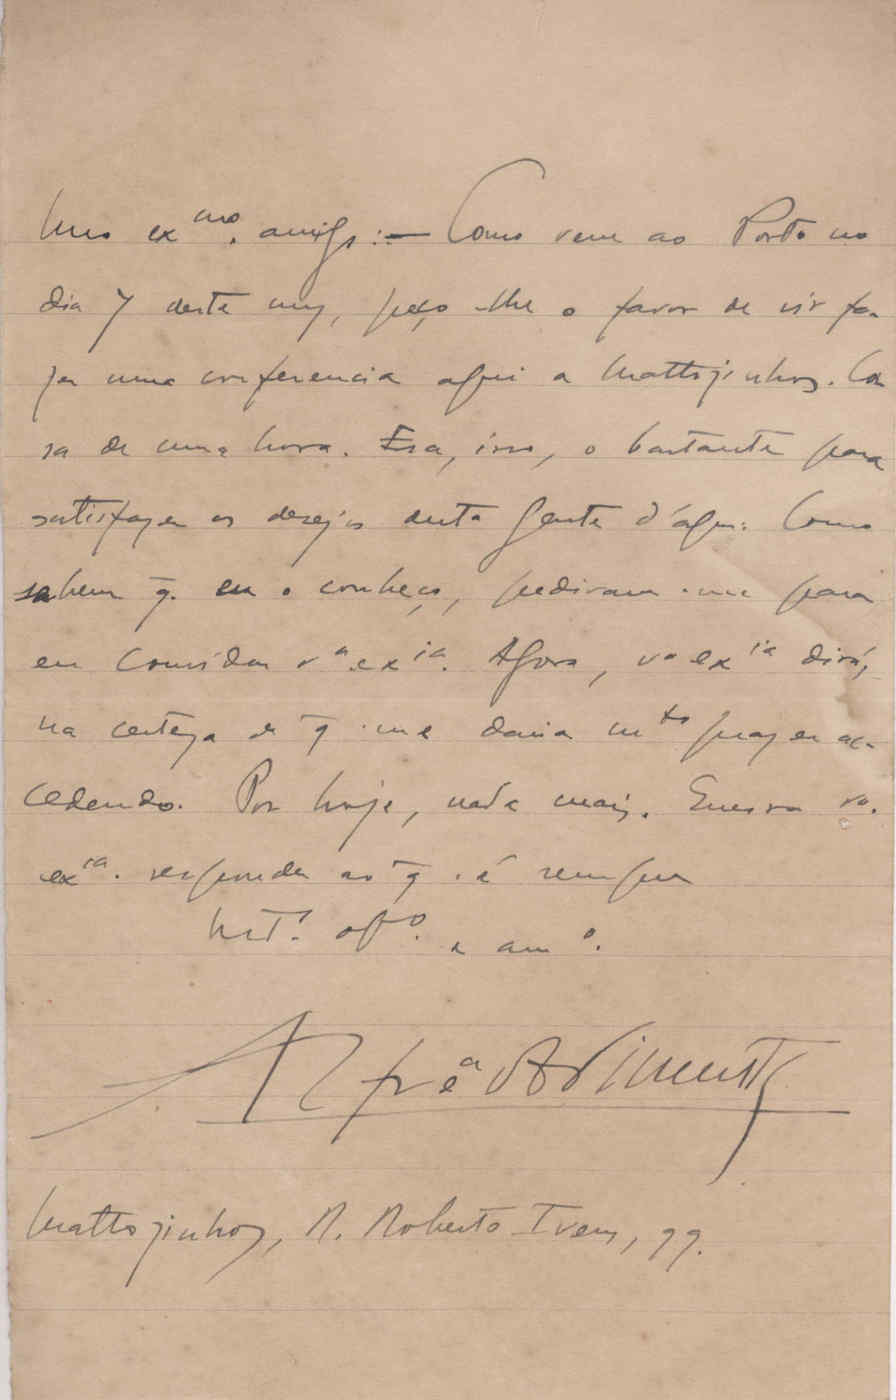 Meu ex.mo amigo: — Como vem ao Porto no
dia 7 deste mez, peço-lhe o favor de vir fa-
zer uma conferencia aqui a Mattozinhos. Coi-
sa de uma hora. Era, isso, o bastante para
satisfazer os desejos desta gente d'agua. Como
sabem q. eu o conheço, pediram-me para
eu convidar v.a ex.ia. Agora, v.a ex.ia dirá,
na certeza de q. me daria m.to prazer ac-
cedendo. Por hoje, nada mais. Queira v.a
ex.ia responder ao q. é sempre
M.to af.o e am.o
Alfredo Pimenta
Mattozinhos, R. Roberto Ivens, 99.